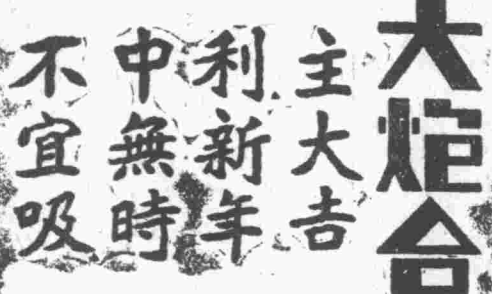 大炮台
主大吉
利新年
中無時
不宜吸